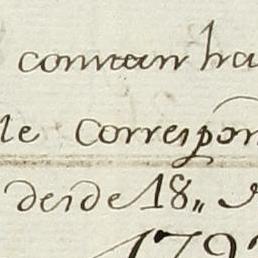 comun ha
le Correspon
desde 18,,
179